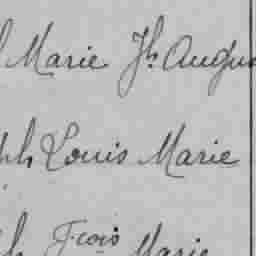 Marie Jh Augus
ph Louis Marie
h Fcois Marie